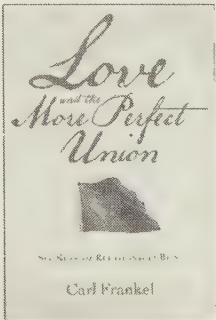 Love
and the
More Perfect
Union
Carl Frankel